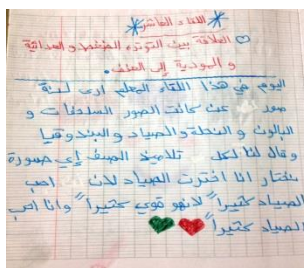 اللقاء العاشر
العلاقة بين التوتر و الضغط و العدائية
و المودية إلى العنف.
اليوم في هذا اللقاء المعلم ارى لنا
صور عن كانت الصور السلحفات و
البالون و النحلة و الصياد و البندوقيا
و قال لنا لكل تلاميذ الصف إي صورة
نختار انا اخترت الصياد لان احب
الصياد كثيراً لانهو قوي كثيراً وانا احب
الصياد كثيراً